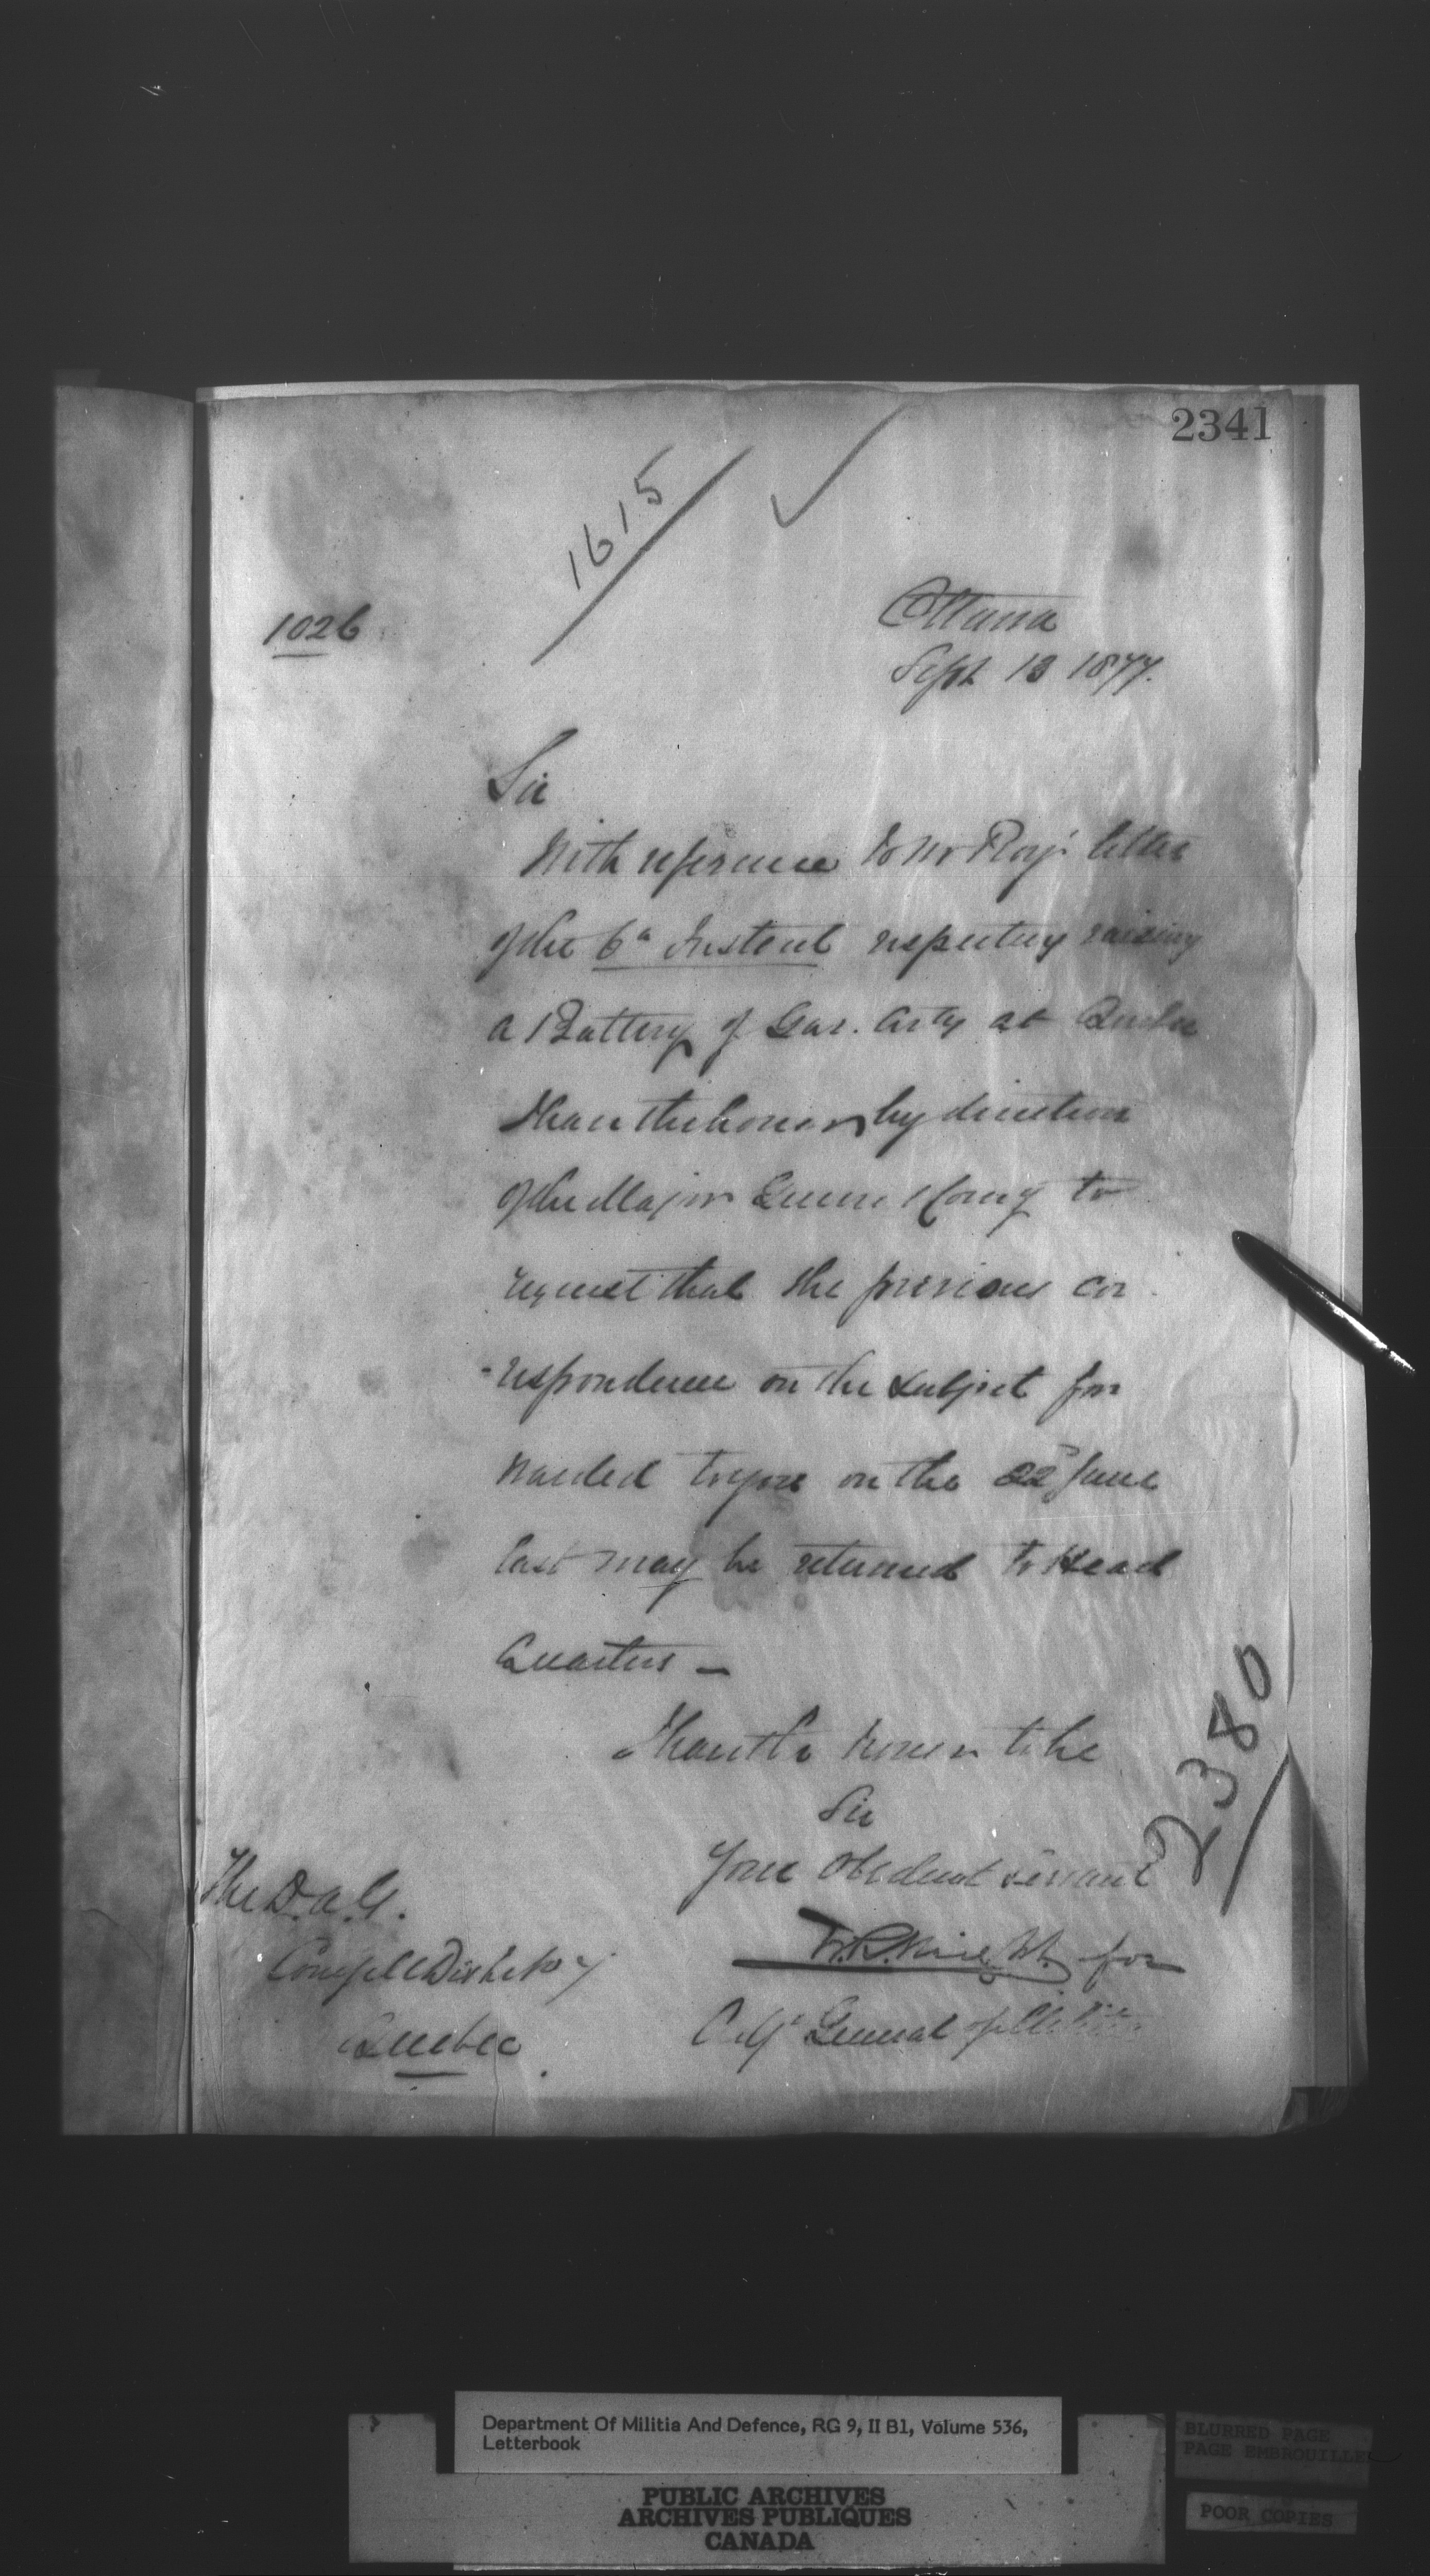 2341
1615
1026
Ottawa
Sept 13 1877.
Sir
With reference to Mr Roy's letter
of the 6th Instant respecting raising
a Battery of Gar. Arty at Quebec
I have the honor by direction
of the Major General Comg to
request that the previous cor
-respondence on the subject for
warded to you on the 22nd June
last may be returned to Head
Quarters -
I have the honor to be
Sir
Your Obedient servant
2380
The D.A.G.
Comg Mil District No 7
Quebec
for
General of Militia
Department Of Militia And Defence, RG 9, II B1, Volume 536,
Letterbook
PUBLIC ARCHIVES
ARCHIVES PUBLIQUES
CANADA
BLURRED PAGE
PAGE EMBROUILLEE
POOR COPIES